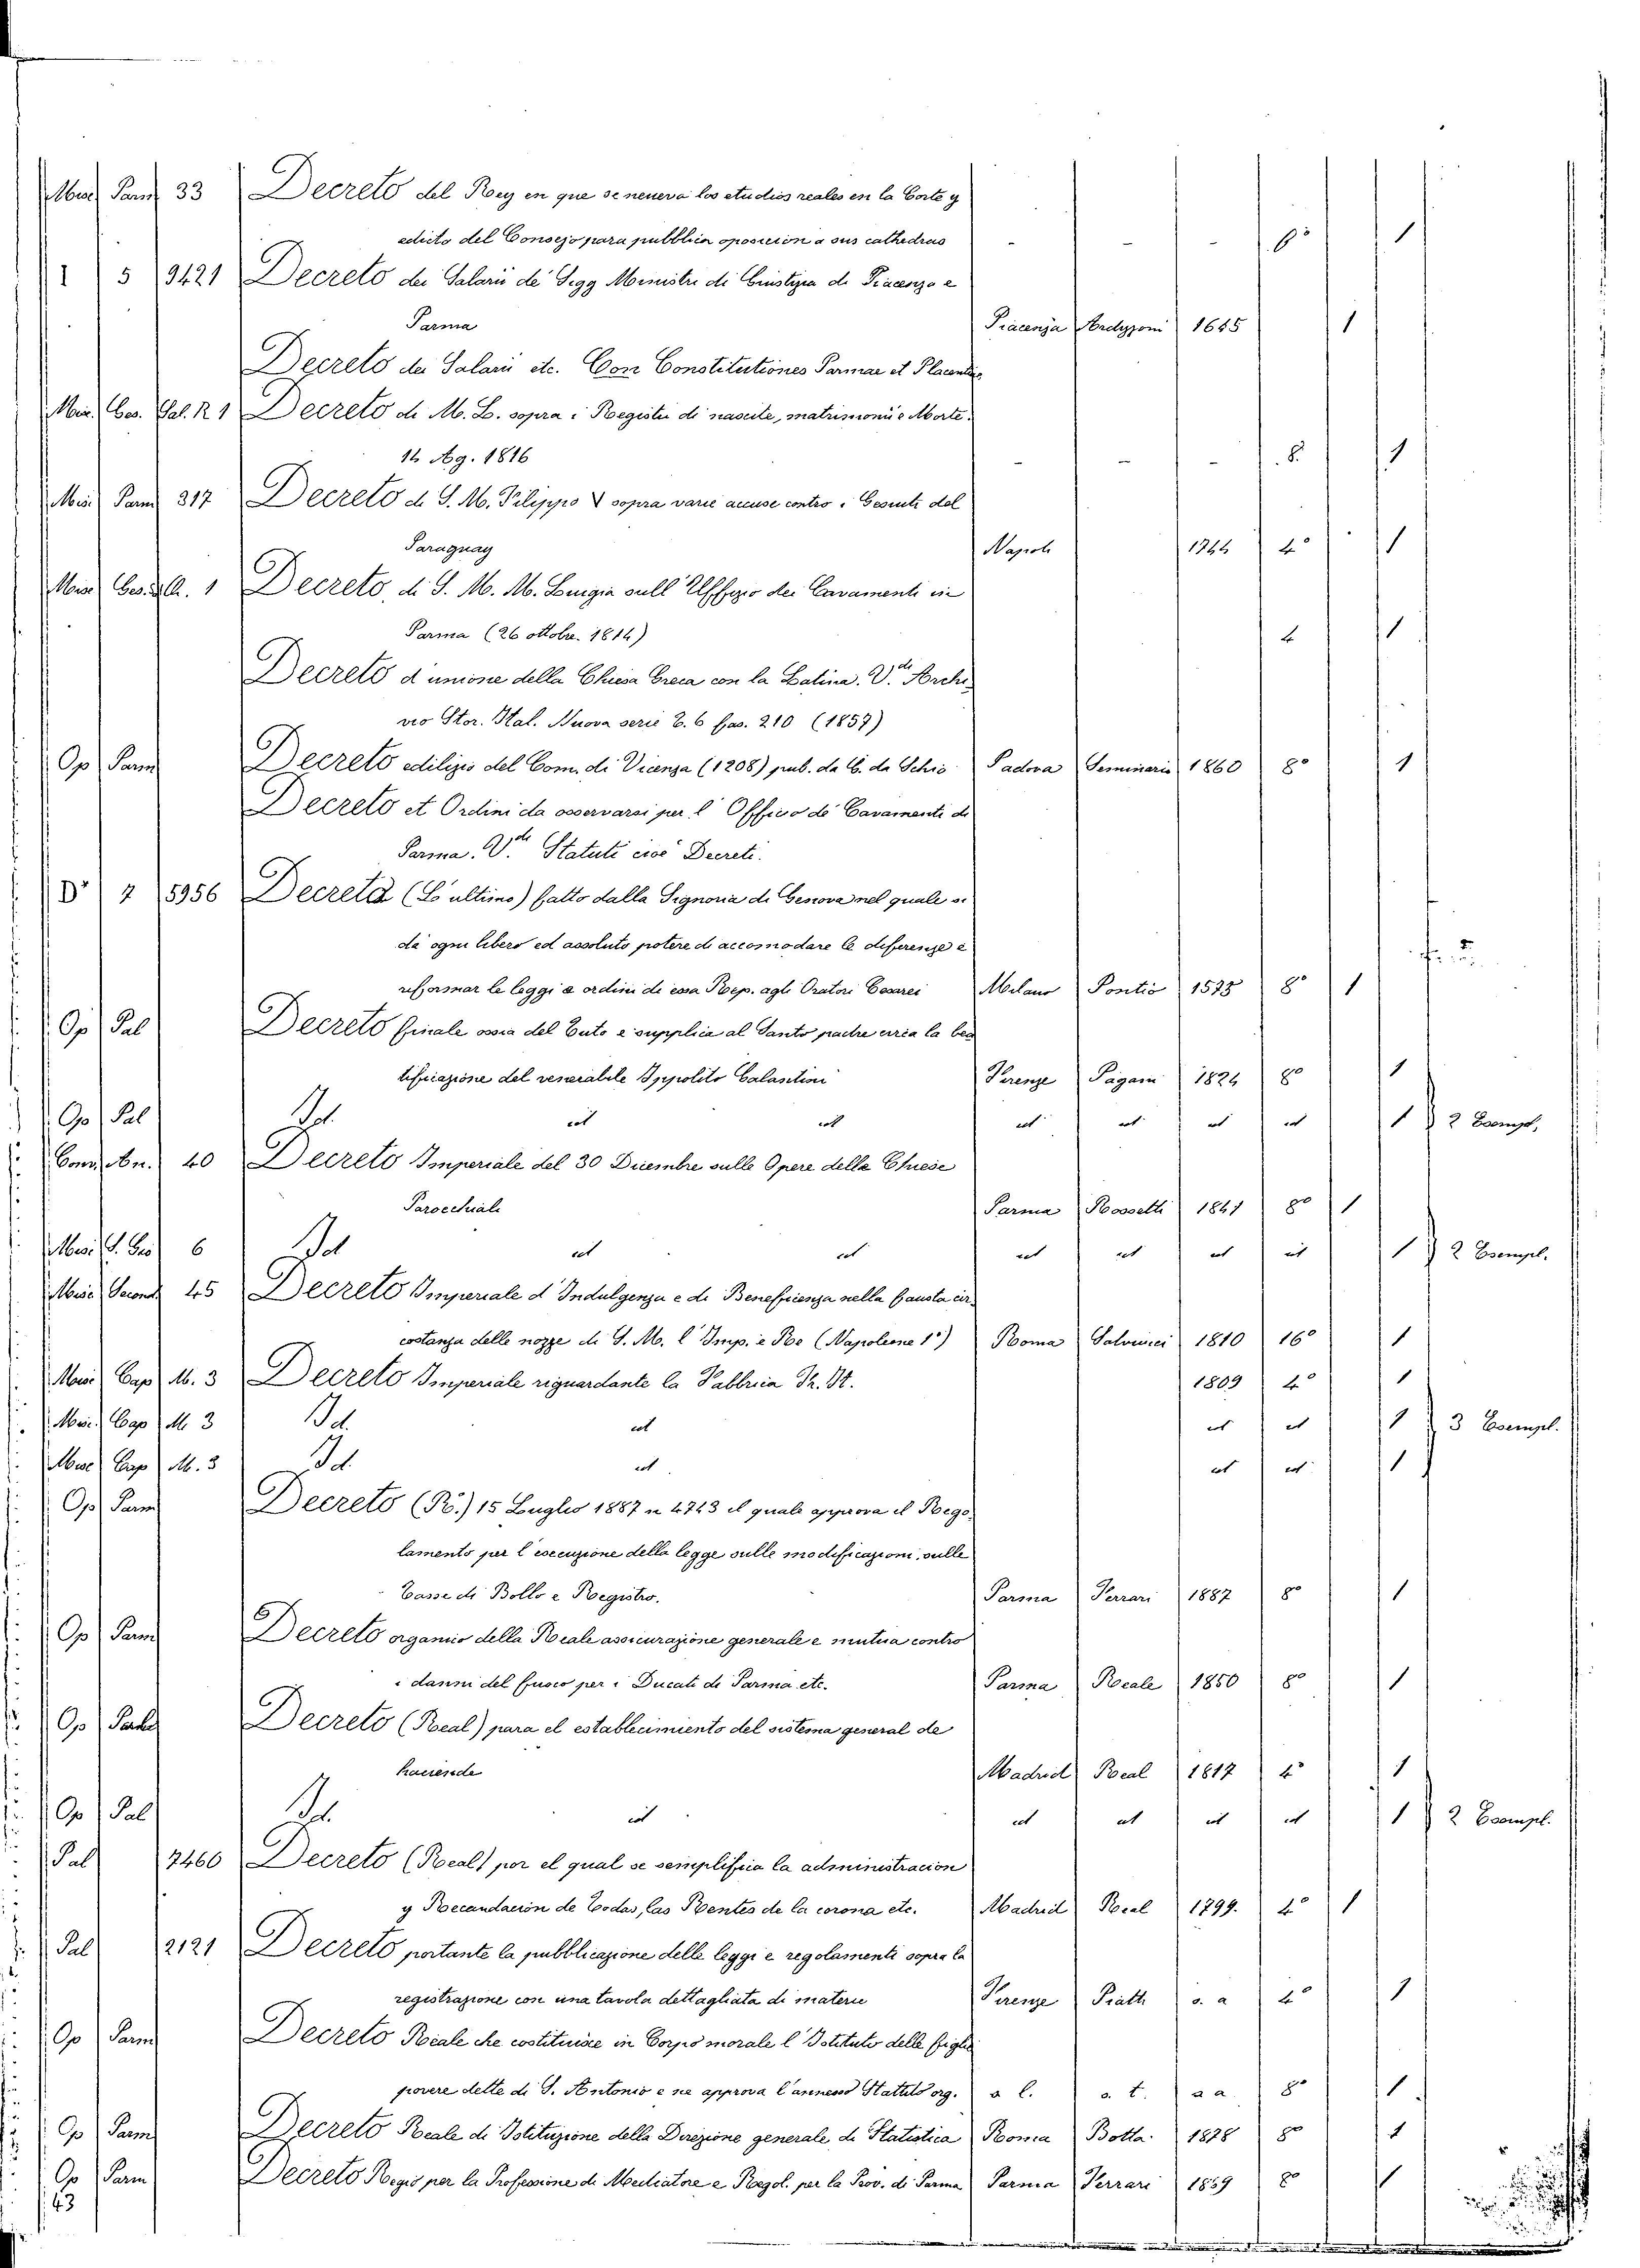 Misc Parm 33 Decreto del Rey en que se renueva los etudios reales en la Corte y
edicto del Consejo para pubblica oposicion a sus cathedras - - - 6° 1
1 5 9421 Decreto dei Salarii de' Sigg Ministri di Giustizia di Piacenza e
Parma Piacenza Ardizzoni 1685 1
Decreto dei Salarii etc. Con Constitutiones Parmae et Placentiae
Mis. Ges. Gal. R 1 Decreto di M. L. sopra i Registri di nascite, matrimonii e Morte.
14 Ag. 1816 - - - 8. 1
Mis. Parm 317 Decreto di S. M. Filippo V sopra varie accuse contro i Gesuiti del
Paraguay Napoli 1744 4° 1
Misc Ges. 1 Decreto di S. M. M. Luigia sull' Uffizio dei Cavamenti in
Parma (26 ottobre 1814) 4 1
Decreto d'unione della Chiesa Greca con la Latina. V.de Archi-
vio Stor. Ital. Nuova serie T. 6 fas. 210 (1857)
Op Parm Decreto edilizio del Com. di Vicenza (1208) pub. da G. da Schio Padova Seminario 1860 8° 1
Decreto et Ordini da osservarsi per l' Officio de' Cavamenti di
Parma. V.de Statuti cioè Decreti.
D° 7 5956 Decreto (L'ultimo) fatto dalla Signoria di Genova nel quale si
dà ogni libero ed assoluto potere di accomodare le diferenze e
refformar le leggi e ordini de essa Rep. agli Oratori Cesarei Milano Pontio 1575 8° 1
Op Pal Decreto finale ossia del tuto e supplica al Santo padre circa la bea
tificazione del venerabile Ippolito Galantini Firenze Pagani 1824 8° 1
Op Pal Id. id id id id id id 1 } 2 Esempl.
40 Decreto Imperiale del 30 Dicembre sulle Opere della Chiese
Parocchiali Parma Rossetti 1841 8° 1
6 Id id id id id id id 1 } 2 Esempl.
Misc 45 Decreto Imperiale d'Indulgenza e di Beneficienza nella fausta cir-
costanza delle nozze di S. M. l'Imp. e Re (Napoleone 1°) Roma Salviucci 1810 16° 1
Misc Cap M. 3 Decreto Imperiale riguardante la Fabbrica Th. It. 1809 4° 1
Misc Cap M 3 Id. id id id 1 } 3 Esempl.
Misc Cap M. 3 Id. id id id 1
Op Parm Decreto (R.) 15 Luglio 1887 n 4743 il quale approva il Rego-
lamento per l'esecuzione della legge sulle modificazioni sulle
Tasse di Bollo e Registro. Parma Ferrari 1887 8° 1
Op Parm Decreto organico della Reale assicurazione generale e mutua contro
i danni del fuoco per i Ducati di Parma etc. Parma Reale 1850 8° 1
Op Decreto (Real) para el establecimiento del sistema general de
haciende Madrid Real 1817 4° 1
Op Pal Id. id id id id id 1 } 2 Esempl.
Pal 7460 Decreto (Real) por el qual se semplifica la administracion
y Recaudacion de Todas, las Rentes de la corona etc. Madrid Real 1799. 4° 1
Pal 2121 Decreto portante la pubblicazione delle leggi e regolamenti sopra la
registrazione con una tavola dettagliata di materie Firenze Piatti s. a 4° 1
Op Parm Decreto Reale che costituisce in Corpo morale l'Istituto delle figlie
povere dette di S. Antonio e ne approva l'annesso Statuto org. s l. s. t. s a. 8° 1
Op Parm Decreto Reale di Istituzione della Direzione generale di Statistica Roma Botta 1878 8° 1
Op Parm Decreto Regio per la Professione di Mediatore e Regol. per la Prov. di Parma Parma Ferrari 1859 8° 1
43